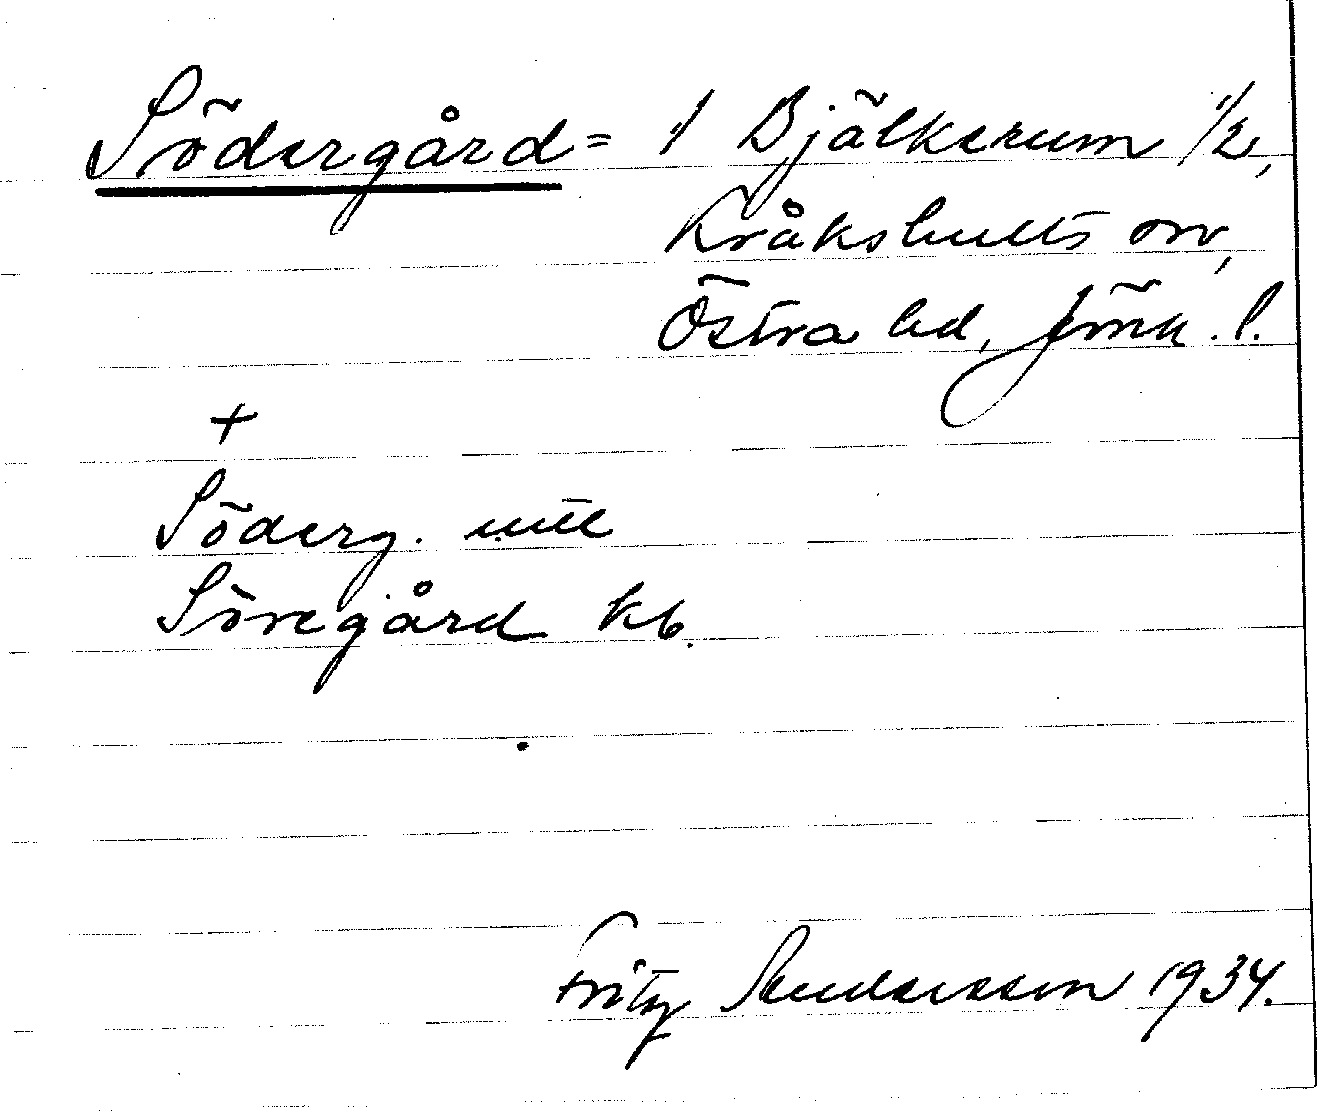 Södergård = 1/ Bjälkerum 1/2,
Kråkshults sn,
Östra hd, Jönk. l.
+
Söderg. utt
Söregård kb.
Fritz Andersson 1934.